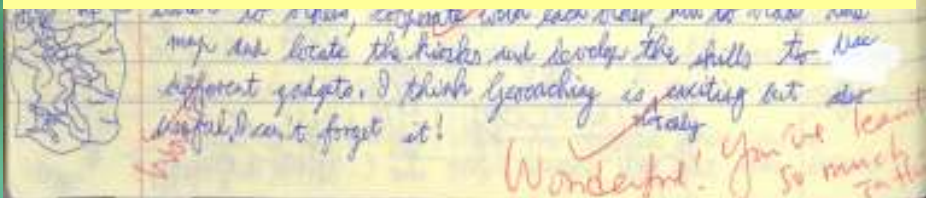 to others, cooperate with each other, how to read the
map and locate the kiosks and develop the skills to use
different gadgets. I think Geocaching is exciting but also
useful, I can't forget it!
Wonderful! You've learnt
so much